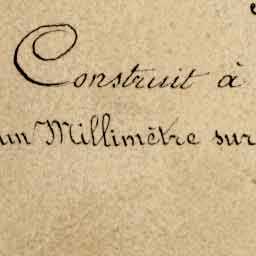 Construit à
un Millimètre sur